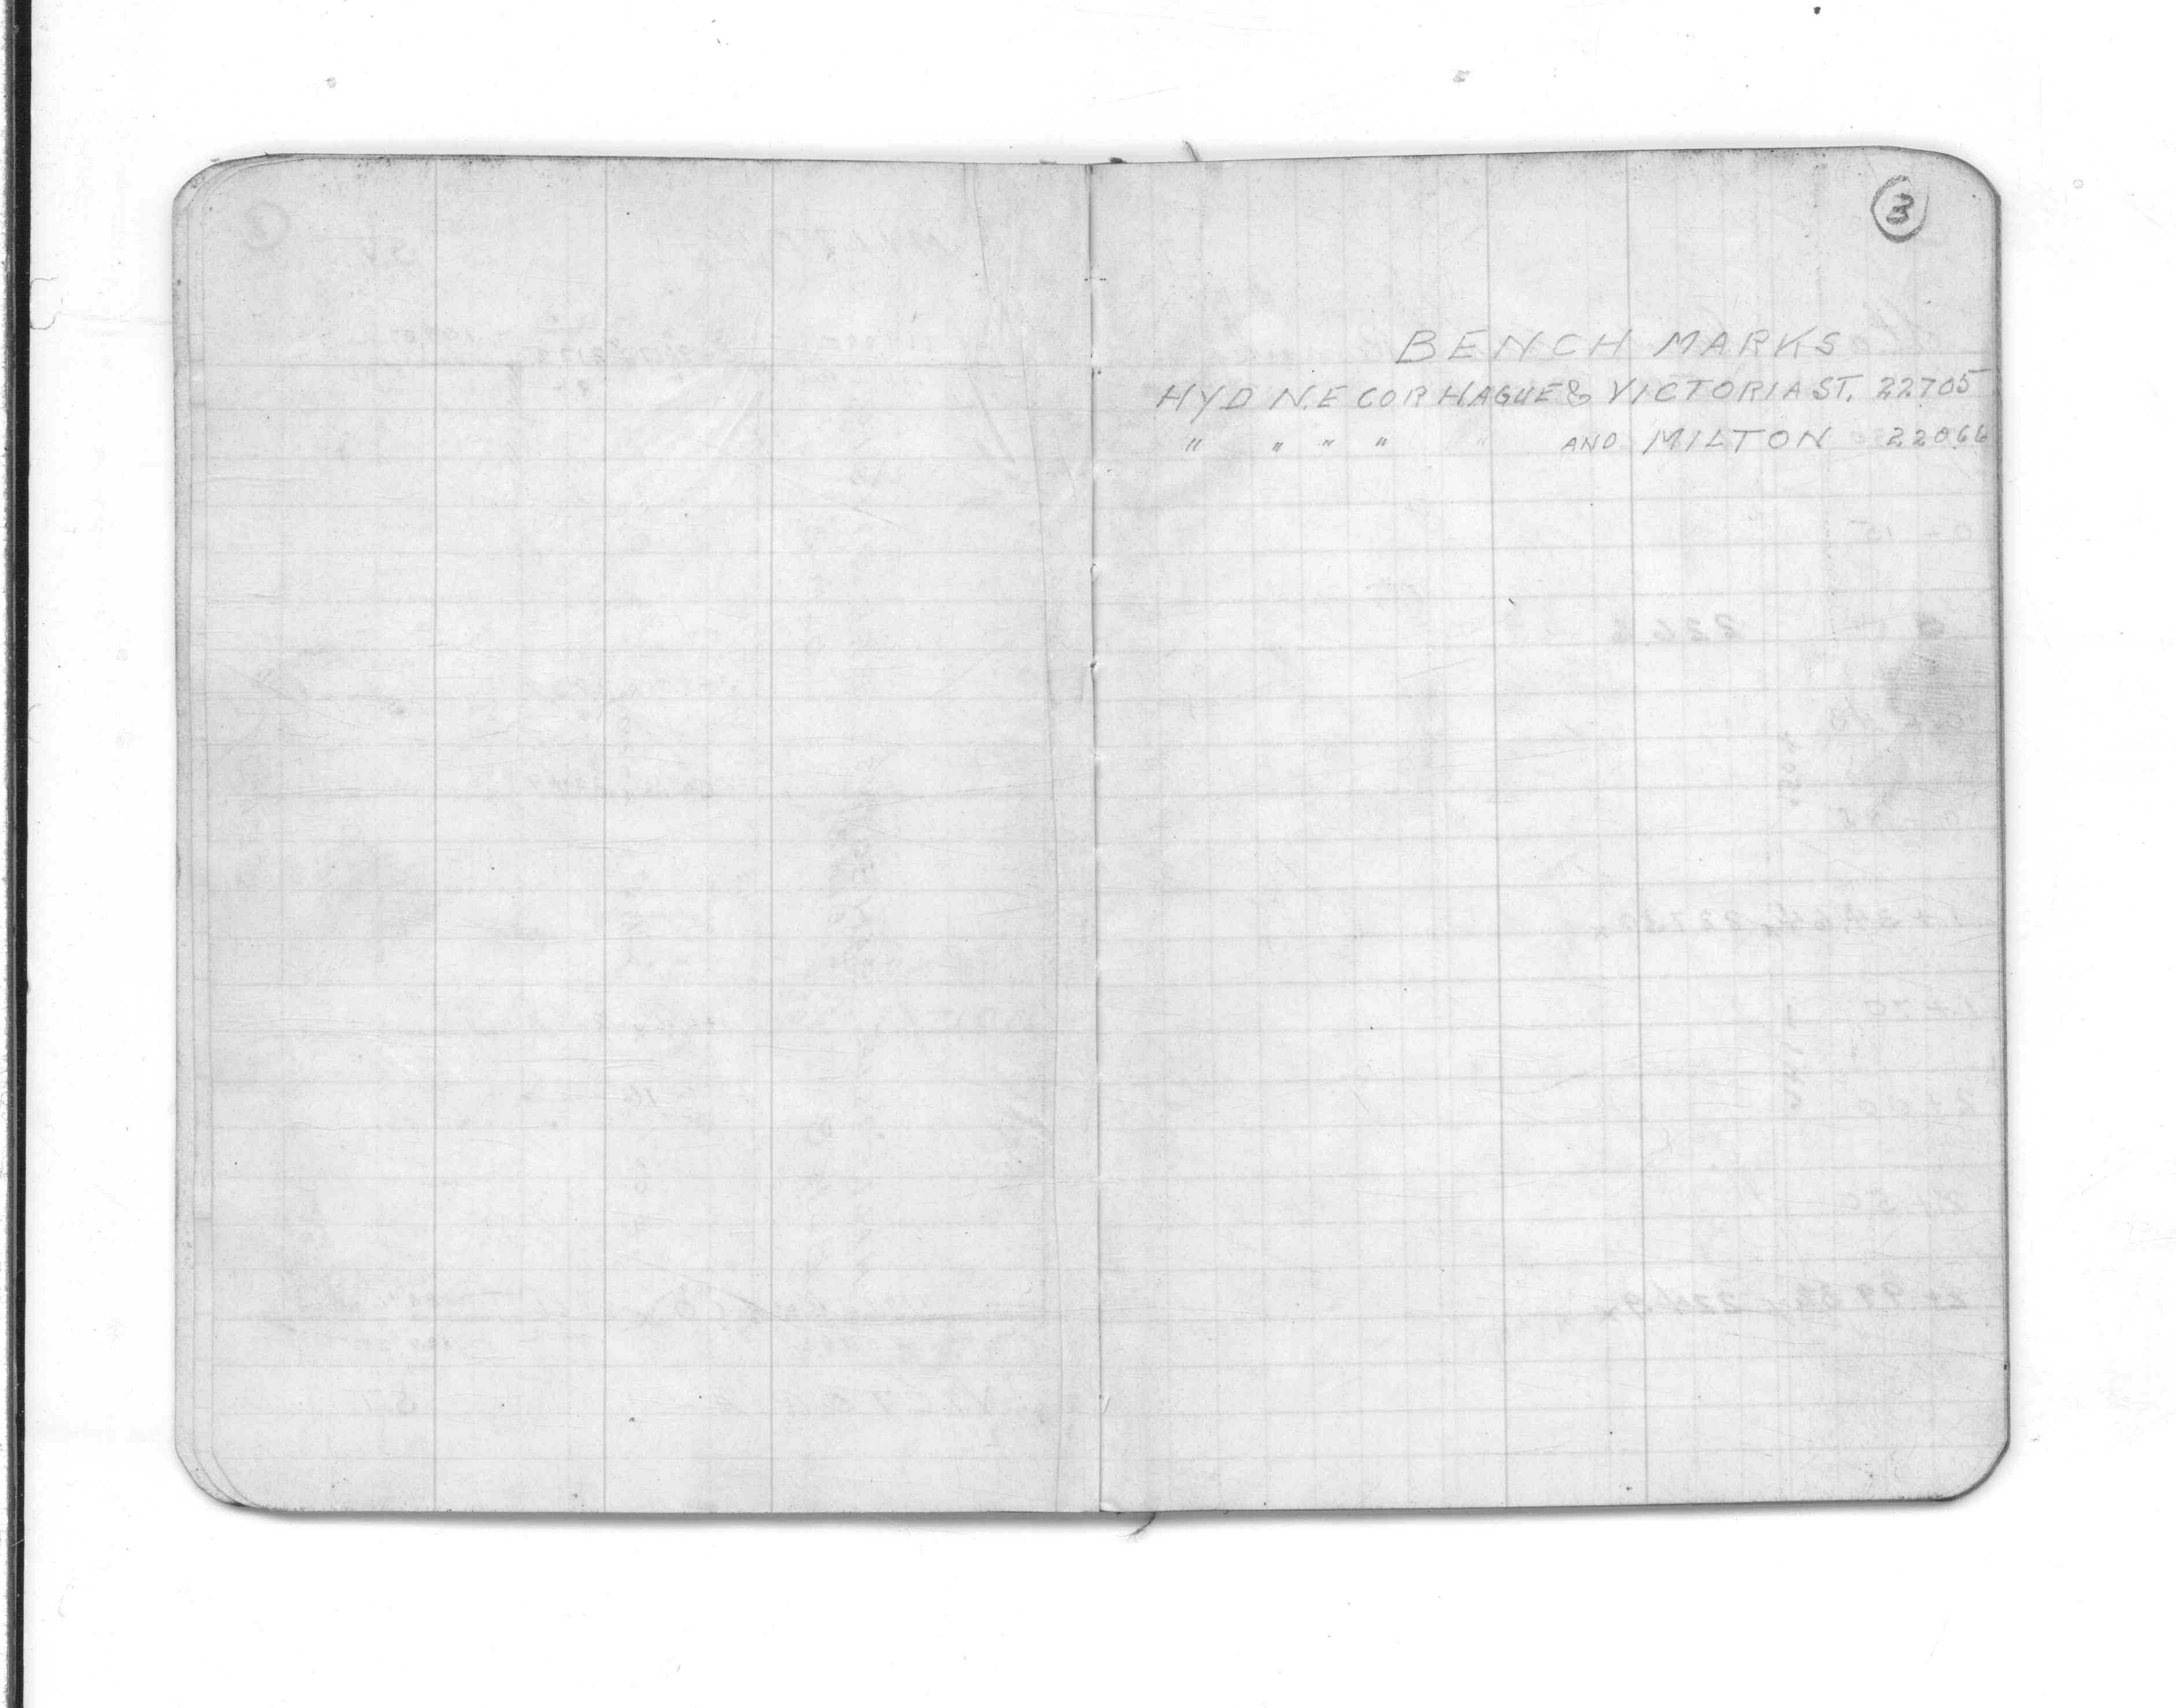 3
BENCH MARKS
HYD N.E COR HAGUE & VICTORIA ST. 22705
" " " " " AND MILTON 22066